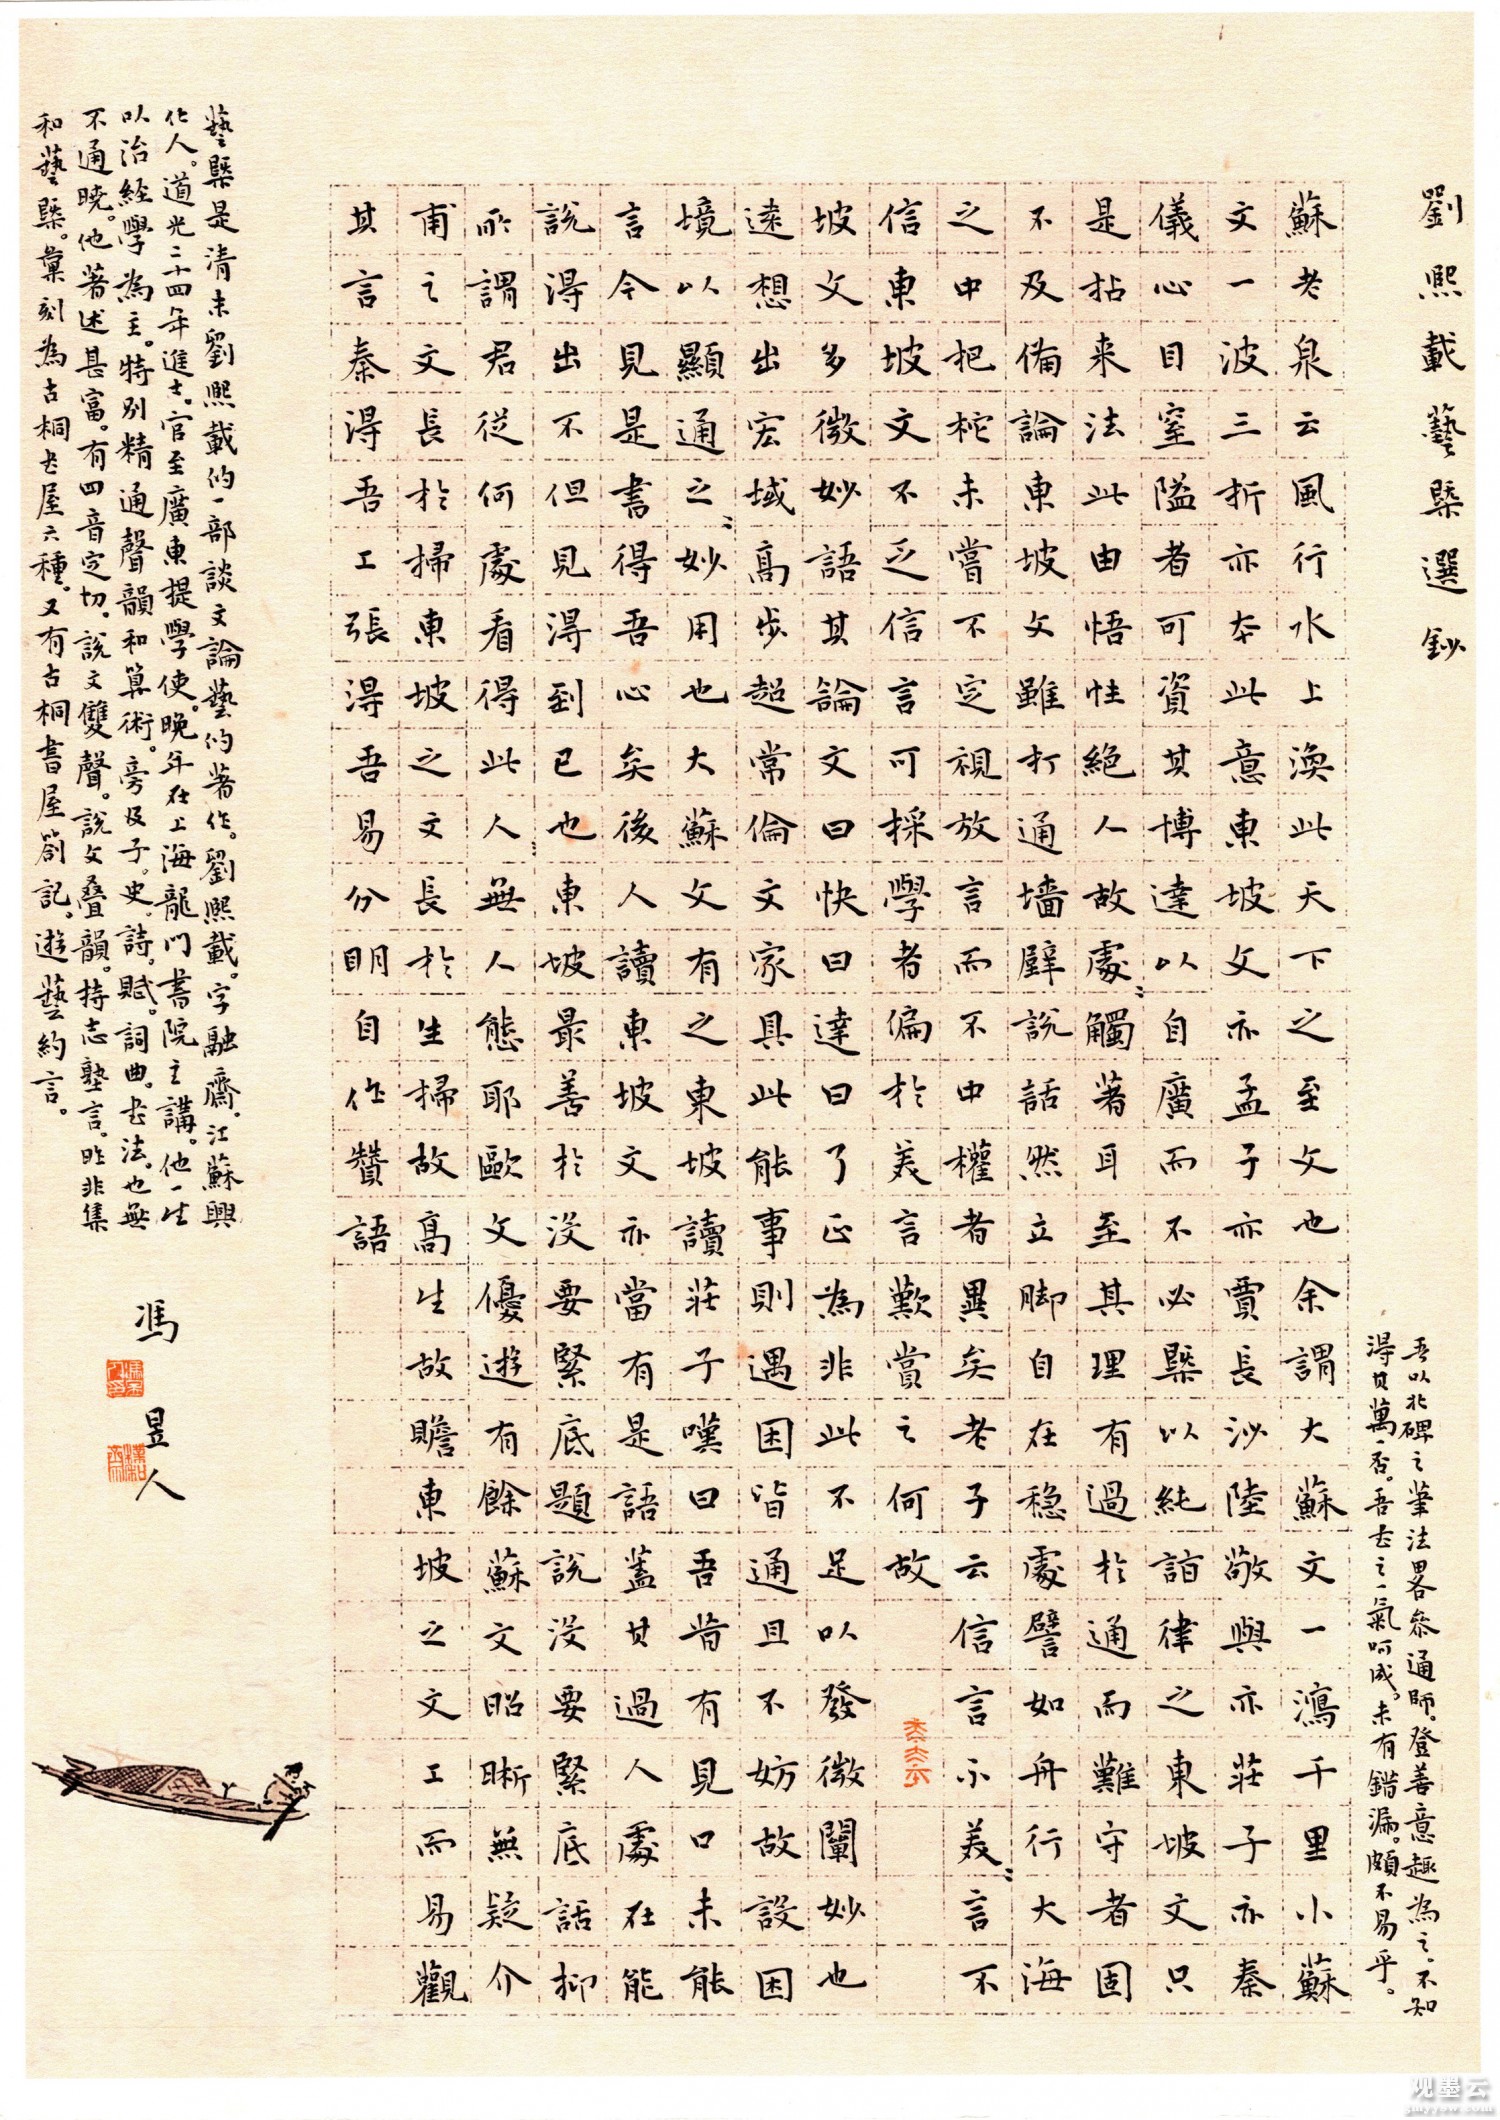 劉熙載藝槩選鈔
吾以北碑之筆法畧參通師。登善意趣為之。不知
得其萬一否。吾书之一氣呵成。未有錯漏。頗不易乎。
蘇老泉云風行水上渙此天下之至文也余謂大蘇文一瀉千里小蘇
文一波三折亦本此意東坡文亦孟子亦賈長沙陸敬輿亦莊子亦秦
儀心目窒隘者可資其博達以自廣而不必槩以純詣律之東坡文只
是拈来法此由悟性絕人故處觸著耳至其理有過於通而難守者固
不及備論東坡文雖打通墻壁說話然立脚自在稳處譬如舟行大海
之中把柁未嘗不定視放言而不中權者異矣老子云信言不美言不
信東坡文不乏信言可採學者偏於美言歎賞之何故
坡文多微妙語其論文曰快曰達曰了正為非此不足以發微闡妙也
遠想出宏域高步超常倫文家具此能事則遇困皆通且不妨故設困
境以顯通之妙用也大蘇文有之東坡讀莊子嘆曰吾昔有見口未能
言今見是書得吾心矣後人讀東坡文亦當有是語蓋其過人處在能
說得出不但見得到已也東坡最善於没要緊底題說没要緊底話抑
所謂君從何處看得此人無人態耶歐文優遊有餘蘇文昭晰無疑介
甫之文長於掃東坡之文長於生掃故高生故贍東坡之文工而易觀
其言秦得吾工張得吾易分明自作贊語
藝槩是清末劉熙載的一部談文論藝的著作。劉熙載。字融齋。江蘇興
化人。道光二十四年進士。官至廣東提學使。晚年在上海龍門書院主講。他一生
以治經學為主。特别精通聲韻和算術。旁及子。史。詩。賦。詞曲。书法。也無
不通曉。他著述甚富。有四音定切。說文雙聲。說文叠韻。持志塾言。昨非集
和藝槩。彙刻為古桐书屋六種。又有古桐書屋劄記。遊藝約言。
馮昱人
观墨云
gmyyow.com